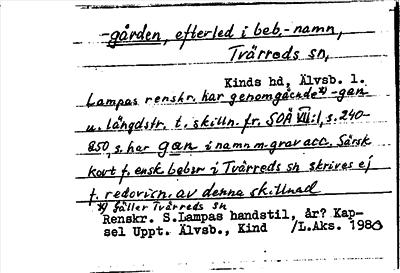 -gården, efterled i beb.-namn,
Tvärreds sn,
Kinds hd, Älvsb. l.
Lampas renskr. har genomgående*) -gan
u. längdstr. t. skilln. fr. SOÄ VII:1, s. 240-
250, s. har gan i namn m. grav acc. Särsk
kort f. ensk. bebor i Tvärreds sn skrives ej
f. redovisn. av denna skillnad
*) gäller Tvärreds sn
Renskr. S.Lampas handstil, år? Kap-
sel Uppt. Älvsb., Kind /L.Aks. 1980